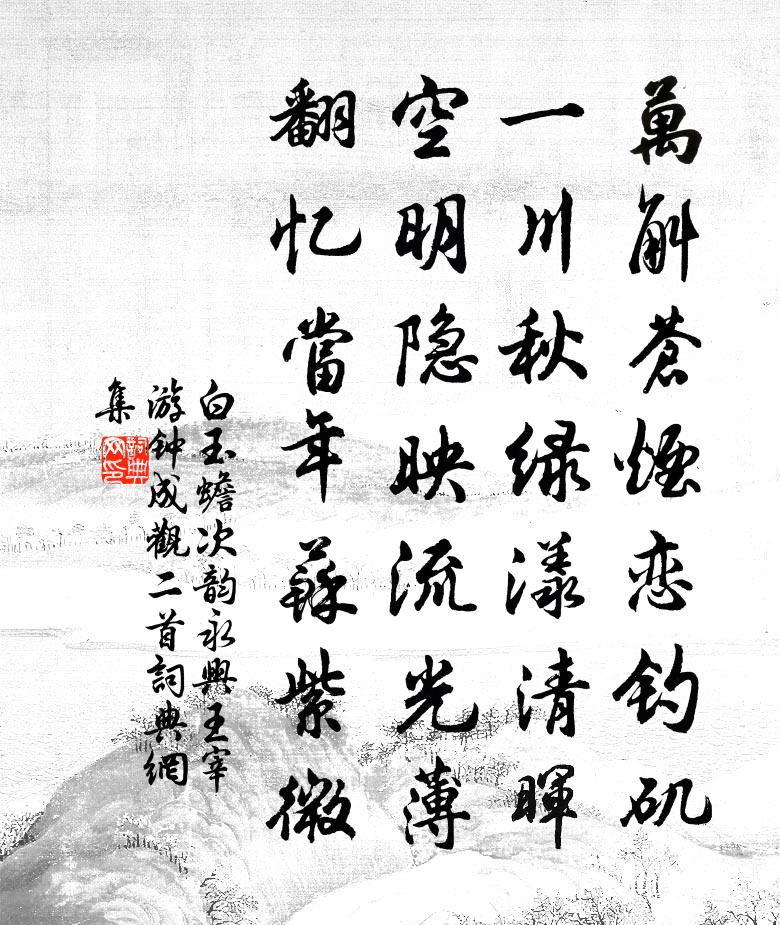 萬斛蒼煙恋钓矶
一川秋绿漾清暉
空明隐映流光薄
翻忆當年蘇紫微
白玉蟾次韵永興王宰
游钟成觀二首詞典網
集
詞典网印